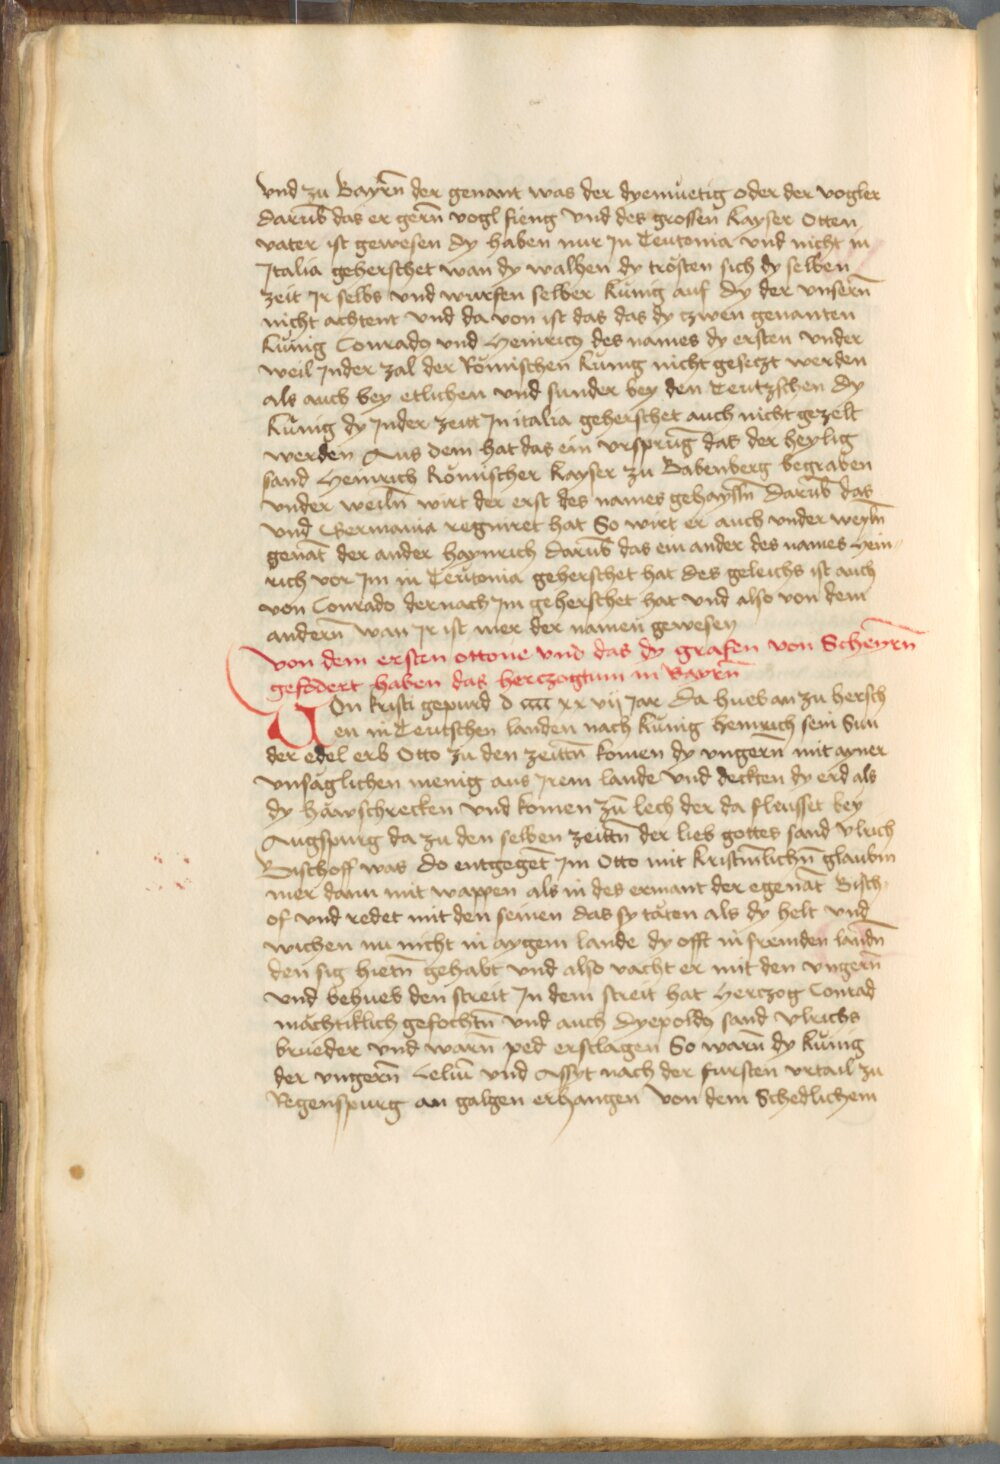 vnd zu Bayrn̄ der genant was der dyemuͤetig oder der vogler
darub̄ das er gern̄ vogl fieng vnd des grossen kayser Otten
vater ist gewesen dy haben nur jn Teutonia vnd nicht in
Italia geherschet wan dy walhen dy trösten sich dy selben
zeit jr selbs vnd wurfen selber kuͤnig auf dy der vnsern̄
nicht achtent vnd da von ist das das dy czwen genanten
kuͤnig Conrado vnd Heinrico des names dy ersten vnder
weil jnder zal der Römischen kuͤnig nicht geseczt werden
als auch bey etlichen vnd sunder bey den Teutzschen dy
kuͤnig dy jnder zeitt jn italia geherschet auch nicht gezelt
werden Aus dem hat das ein vrsprūg das der heylig
sand Heinrich Römischer kayser zu Babenberg begraben
vnder weiln̄ wirt der erst des names gehayssn̄ darūb das
vnd Germania regniret hat So wirt er auch vnder weyln̄
genāt der ander haynrich darūb das ein ander des names hein
rich vor jm in Teutonia geherschet hat des geleichs ist auch
von Conrado dernach jm geherschet hat vnd also von dem
andern̄ wan jr ist mer der namen gewesen
von dem ersten ottone vnd das dy grafen von Scheyrn̄
gefodert haben das herczogtum in Bayrn̄
Von kristi gepurd d cccc xx vij jar da hueb an zu hersch
en in Teutschen landen nach kuͤnig heinrich sein sun
der edel erb Otto zu den zeittn̄ komen dy vngern̄ mit ayner
vnsäglichen menig aus jrem lande vnd deckten dy erd als
dy häwschrecken vnd komen zū lech der da fleusset bey
Augspurg da zu den selben zeittn̄ der lieb gottes sand vlrich
Bischoff was do entgegēt jm Otto mit kristnlichn̄ glaubm
mer dann mit wappen als in des ermant der egenāt Bisch
of vnd redet mit den seinen das sy täten als dy helt vnd
wichen nu nicht in aygem lande dy offt in fremden landn̄
den sig hietn̄ gehabt vnd also vacht er mit den vngern̄
vnd behueb den streit jn dem streit hat Herczog Conrad
mächtiklich gefochtn̄ vnd auch dyepoldo sand vlrichs
brueder vnd warn̄ ped erslagen So warn̄ dy kuͤnig
der vngern̄ Leliū vnd Assyt nach der fursten vrtail zu
Regenspurg an galgen erhangen von dem Schedlichem